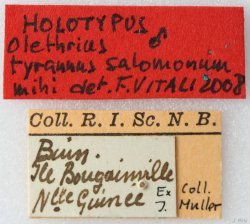 HOLOTYPUS ♂
Olethrius
tyrannus salomonum
mihi det. F. VITALI 2008
Coll. R. I. Sc. N. B.
Buin
Ile Bougainville
Nlle Guinée
Ex
Coll.
Muller